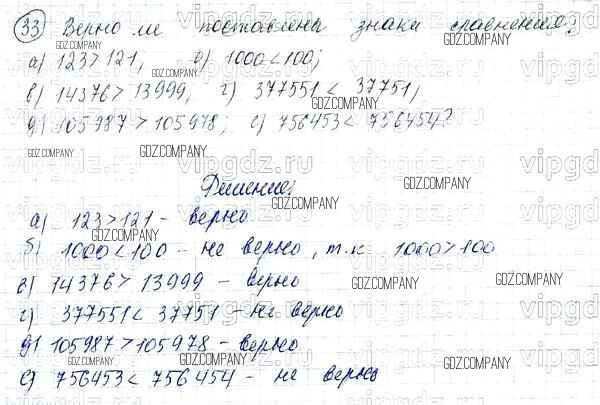 33) Верно ли поставлены знаки сравнения:
а) 123 > 121, б) 1000 < 100;
в) 14376 > 13999, г) 377551 < 37751,
д) 105987 > 105978; е) 756453 < 756454?
Решение.
а) 123 > 121 - верно
б) 1000 < 100 - не верно, т.к 1000 > 100
в) 14376 > 13999 - верно
г) 377551 < 37751 - не верно
д) 105987 > 105978 - верно
е) 756453 < 756454 - не верно